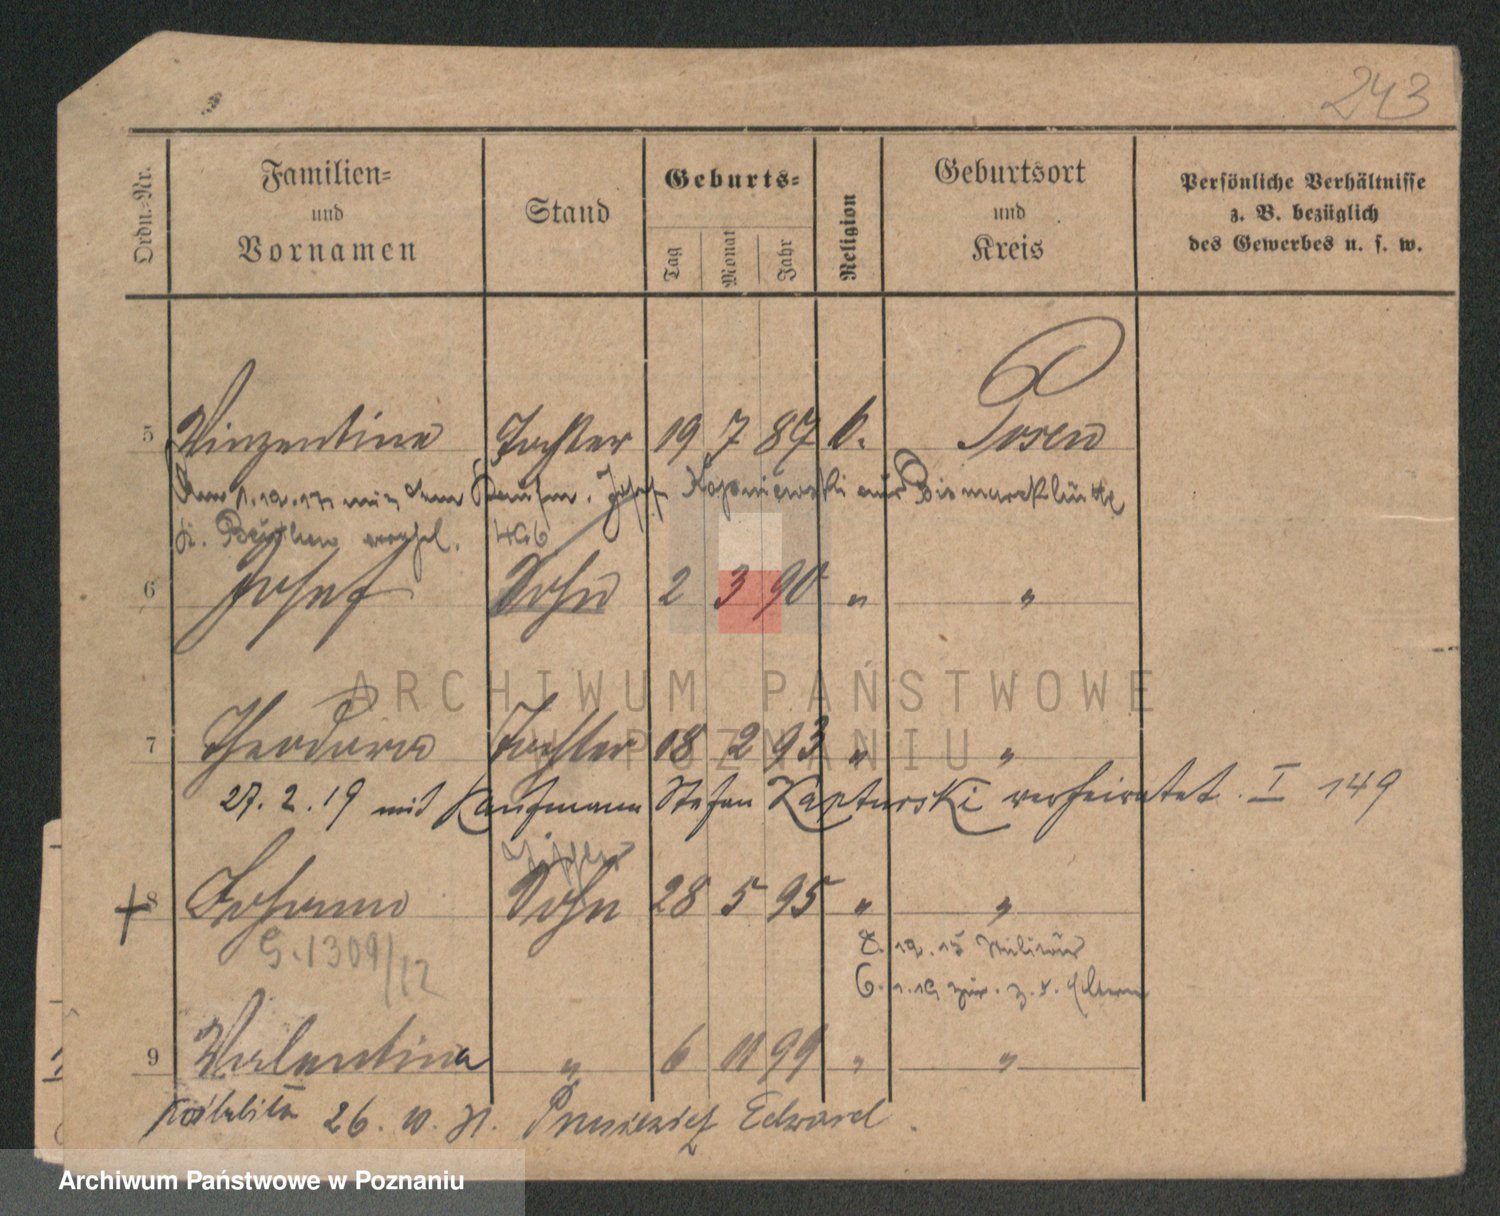 243
Ordn.-Nr.
Familien- und Vornamen
Stand
Geburts-
Tag Monat Jahr
Religion
Geburtsort und Kreis
Persönliche Verhältnisse z. B. bezüglich des Gewerbes u. s. w.
5 Winzentina Tochter 19 7 87 k. Posen
mit dem Kaufm. Josef aus Bismarckhütte
Beuthen verehel.
6 Josef Sohn 2 3 90 " "
7 Theodora Tochter 18 2 93 " "
27. 2. 19 mit Kaufmann Stefan Kapturski verheiratet. I 149
8 Johann Sohn 28 5 95 " "
G. 1309/12
Militär
6. 1. 19 zur. z. d. Eltern
9 Valentina " 6 11 99 " "
26. Edward
ARCHIWUM PAŃSTWOWE
W POZNANIU
Archiwum Państwowe w Poznaniu